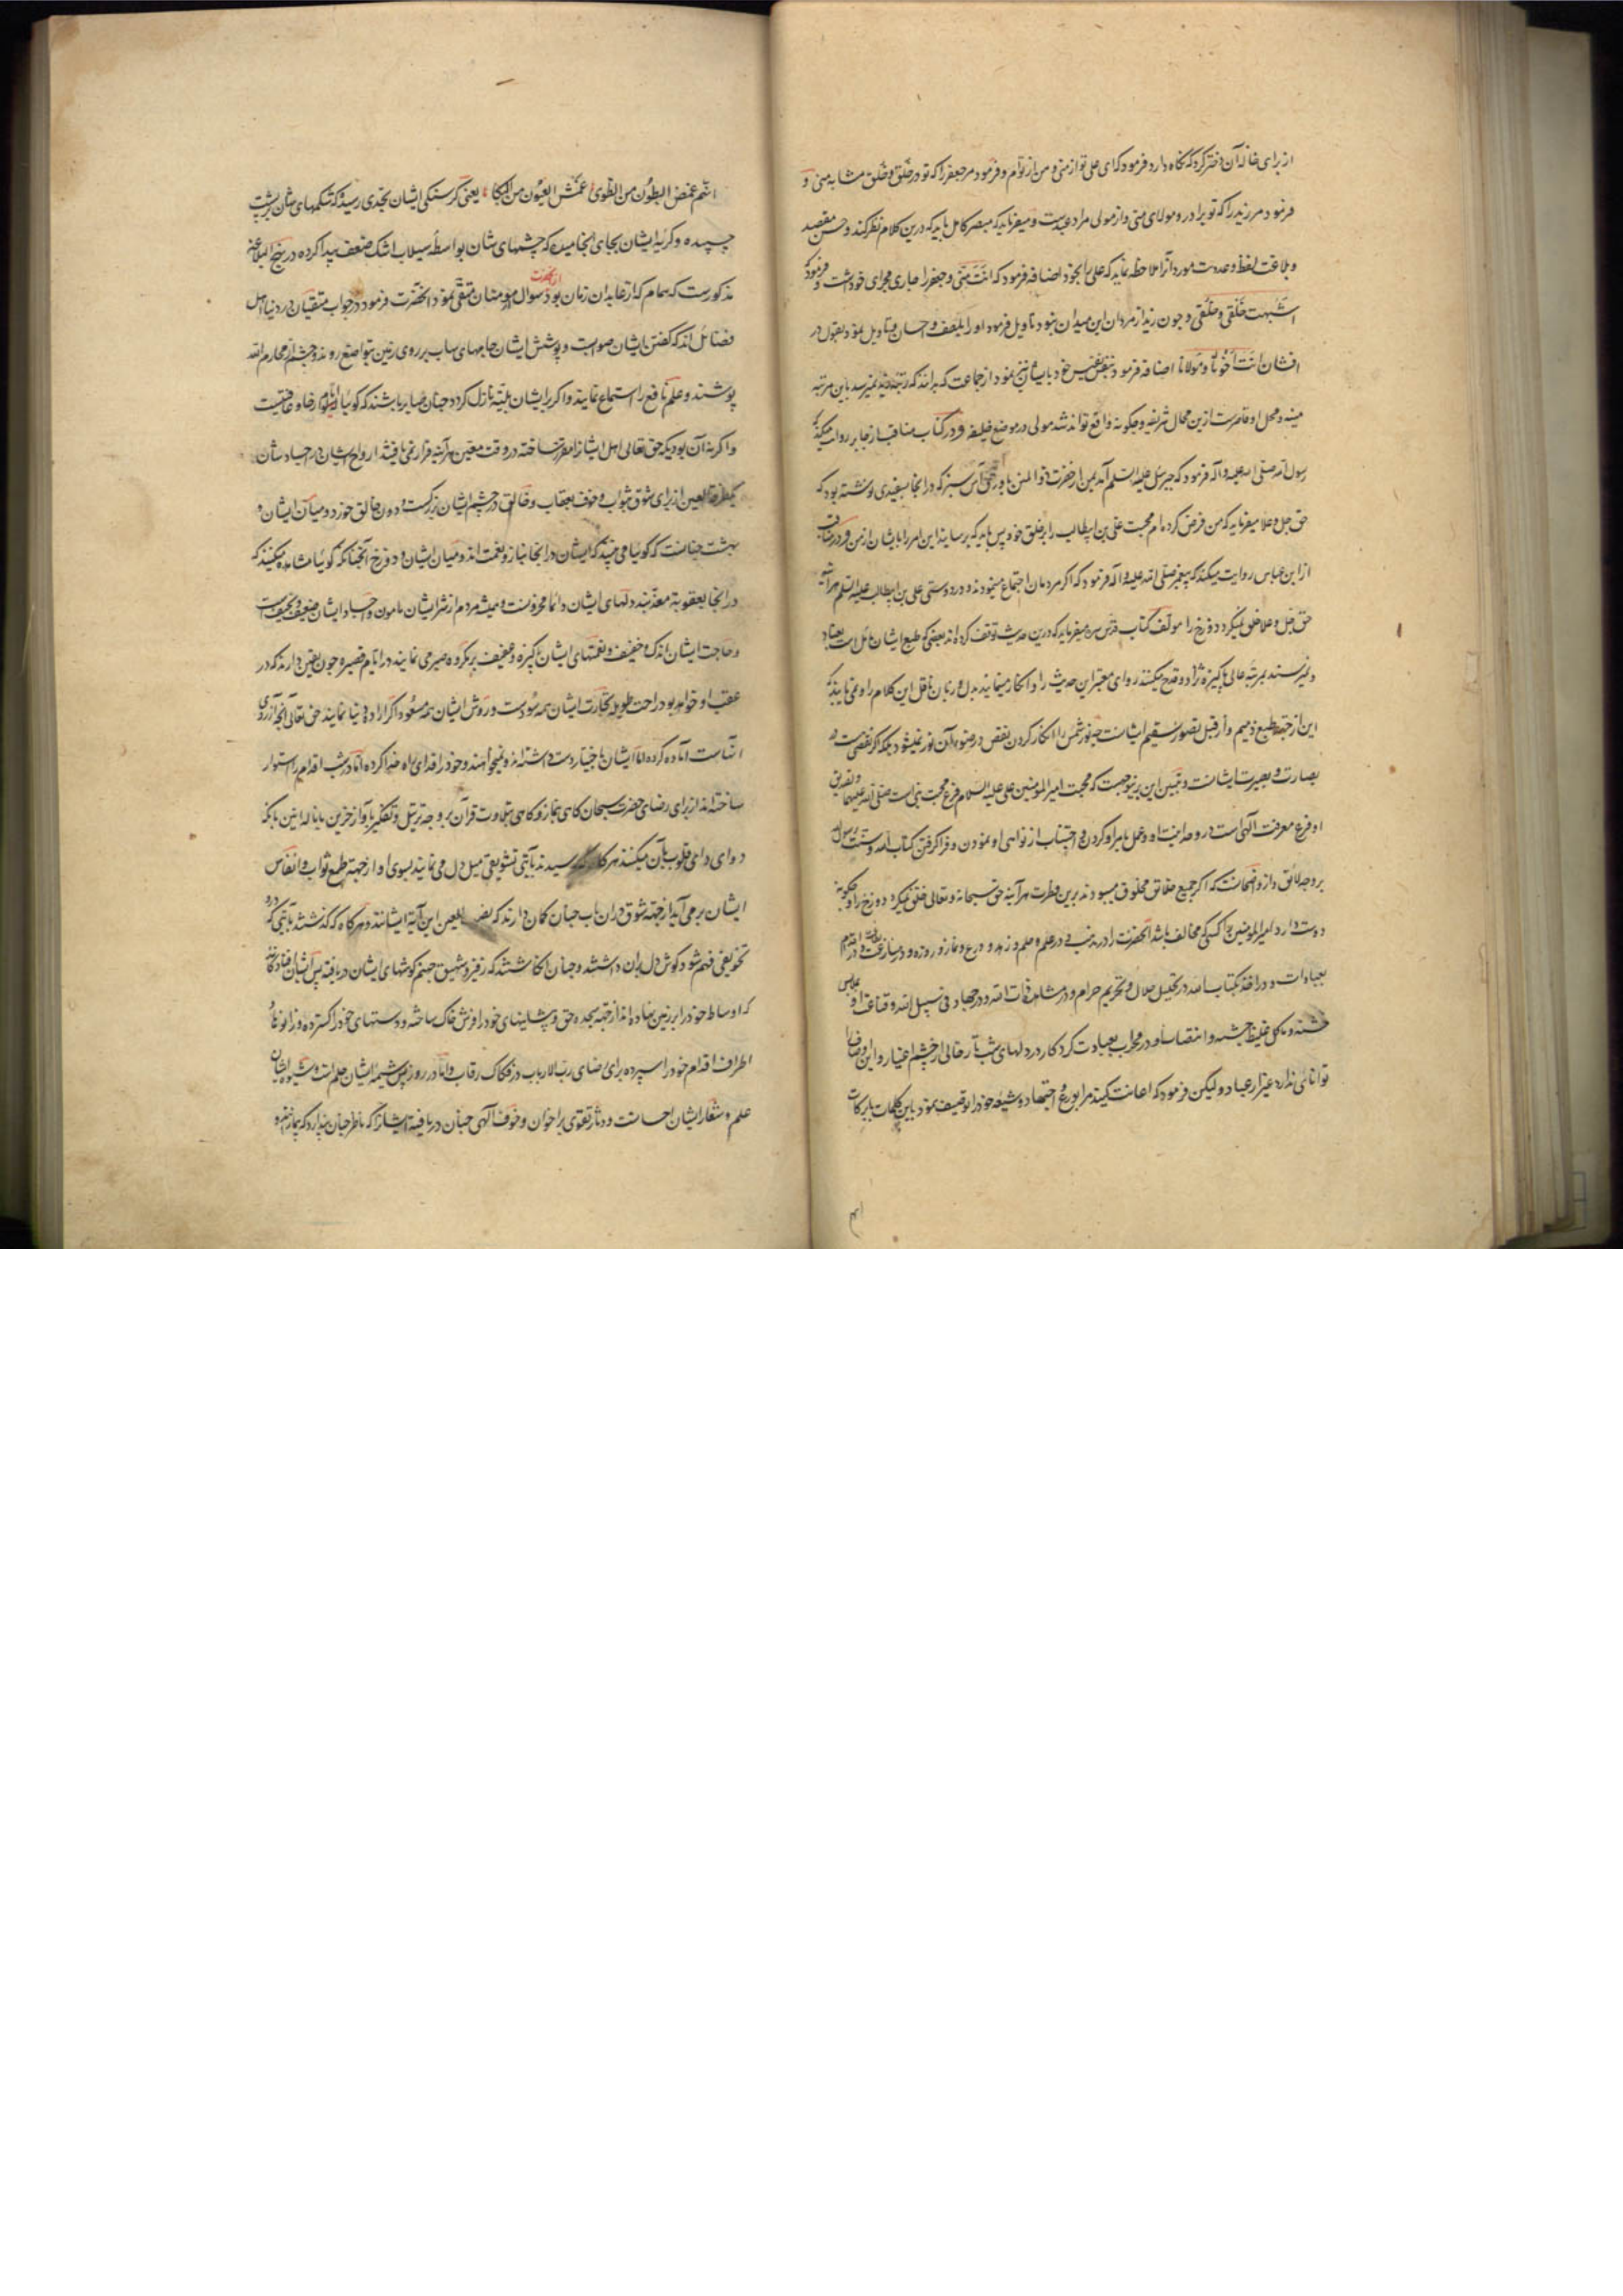 از برای خاله آن دختر کرد که نگاه دارد فرمود که ای علی تو از منی و من از توام و فرمود مر جعفر را که تو در خَلق و خُلق مشابه منی و
فرمود مر زید را که تو برادر و مولای منی و از مولی مراد عبدست و میفرماید که مبصر کامل باید که درین کلام نظر کند و حسن مقصد
و بلاغت لفظ و عدوبت مورد آنرا ملاحظه نماید که علی را بخود اضافه فرمود که انتَ مِنّی و جعفر را جاری مجرای خود داشت و فرمود که
اشبهت خَلقی و خُلقی و چون زید از مردان این میدان نبود تاویل فرمود او را بلطف و احسان و تاویل نمود بقبول در
افشان انتَ اخونا و مولانا اضافه فرمود بنفس نفیس خود بایشان نیز نمود از جماعت که برانند که رتبه زید نمیرسد باین مرتبه
منیه و محل او قاصرست ازین محال شریفه و چگونه واقع تواند شد مولی در موضع خلیفه و در کتاب مناقب از جابر روایت میکند که
رسول الله صلی الله علیه و آله فرمود که جبرئیل علیه السلم آمد بمن از حضرت ذو المنن با ورقی آس سبز که در انجا بسفیدی نوشته بود که
حق جل و علا میفرماید که من فرض کرده ام محبت علی بن ابیطالب را بر خلق خود پس باید که برسانید این امر را بایشان از من و در مناقب
از ابن عباس روایت میکند که پیغمبر صلی الله علیه و آله فرمود که اگر مردمان اجتماع مینمودند در دوستی علی بن ابیطالب علیه السلم هر آینه
حق جل و علا خلق نمیکرد دوزخ را مولف کتاب قدس سره میفرماید که درین حدیث توقف کرده اند بعضی که طبع ایشان مائل است بعناد
و نمیرسند بمرتبه عالی پاکیزه نژاد و قدح میکنند روای معتبر این حدیث را و انکار مینمایند بدل و زبان ناقل این کلام را و نمی یابند که
این از جهة طبع ذمیم و از قبل تصور سقیم ایشانست چه نور شمس را انکار کردن نقص در ضوء آن نور نمیشود بلکه اگر نقصی هست در
بصارت و بصیرت ایشانست و تبیین این برینوجهست که محبت امیر المومنین علی علیه السلام فرع محبت نبی است صلی الله علیهما و تصدیق
او فرع معرفت الهی است در وحدانیت او و عمل باوامر او کردن و اجتناب از نواهی او نمودن و فرا گرفتن کتاب الله و سنت رسول
بر وجه لائق و از واضحاتست که اگر جمیع خلائق مخلوق میبودند برین فطرت هر آینه حق سبحانه و تعالی خلق نمیکرد دوزخ را و چگونه
دوست دارد امیر المومنین را کسی که مخالف باشد آنحضرت را در مذهب و در علم و حلم و زهد و ورع و نماز و روزه و در مسارعت طاعت و اقدام
بعبادات و در اخذ بکتاب الله در تحلیل حلال و تحریم حرام و در مشاهده ذات الله و در جهاد فی سبیل الله و قناعت او بملابس
خشنه و ماکل غلیظ جشبه و انتصاب او در محراب بعبادت کردگار در دلهای شب تار خالی از چشم اغیار و این اوصاف را
توانائی ندارد غیر از عباد و لیکن فرمود که اعانت کنید مرا بورع و اجتهاد و شیعه خود را توصیف نمود باین کلمات بابرکات
انهم
انهم خمص البطون من الطوی عمش العیون من البکا یعنی گرسنگی ایشان بحدی رسیده که شکمهای شان بر پشت
چسپیده و گریه ایشان بجای انجامیده که چشمهای شان بواسطه سیلاب اشک ضعف پیدا کرده در نهج البلاغه
مذکورست که همام که از عابدان زمان بود سوال از مومنان متقی نمود از آنحضرت آنحضرت فرمود در جواب متقیان در دنیا اهل
فضائل اند که گفتن ایشان صوابست و پوشش ایشان جامهای ساب بر روی زمین بتواضع روند و چشم از محارم الله
پوشند و علم نافع را استماع نمایند و اگر بر ایشان بلیّه نازل گردد چنان صابر باشند که گویا ایام رخا و عافیت
و اگر نه آن بودی که حق تعالی اجل ایشانرا مقرر ساخته در وقت معین هر آینه قرار نمی یافتند ارواح ایشان در اجساد شان
یک طرفة العین از برای شوق ثواب و خوف عقاب و خالق در چشم ایشان بزرگست و دون خالق خورد و میان ایشان و
بهشت چنانست که گویا می بینند که ایشان در انجا بناز و نعمت اند و میان ایشان و دوزخ آنچنانکه گویا مشاهده میکنند که
در انجا بعقوبة معذبند دلهای ایشان دائما محزونست و همیشه مردم از شر ایشان مامون و اجساد ایشان ضعیف و نحیفست
و حاجت ایشان اندک و خفیف و نفسهای ایشان پاکیزه و عفیف بر مکروه صبر می نمایند در ایام قصیره چون یقین دارند که در
عقب او خواهد بود راحت طویله تجارت ایشان همه سودست و روش ایشان همه مسعود اگر اراده دنیا نمایند حق تعالی آنچه آرزوی
انهاست آماده کرده اما ایشان باختیار دست داشته اند و نمیخواهند و خود را فدای راه خدا کرده اما در شب اقدام را استوار
ساخته اند از برای رضای حضرت سبحان گاهی بنماز و گاهی بتلاوت قرآن بر وجه ترتیل و تفکیر بآواز حزین با ناله انین بانکه
دوای داعی قلوب بآن میکنند هر گاه که رسیدند بآیتی تشویقی میل دل می نمایند بسوی او از جهة طمع ثواب و انفاس
ایشان بر می آید از جهة شوق دران باب چنان گمان دارند که نصب العین این آیه ایشانند و هر گاه که گذشتند بآیتی که درو
تخویفی فهم شود گوش دل بران داشتند و چنان انگاشتند که زفیر و شهیق جهنم گوشهای ایشان دریافته پس ایشان
که اوساط خود را بر زمین نهاده اند از جهة سجده حق و پیشانیهای خود را فرش خاک ساخته و دستهای خود را گسترده و زانوها و
اطراف اقدام خود را سپرده برای رضای رب الارباب در فکاک رقاب و اما در روز پس شیمه ایشان حلم است و شیوه ایشان
علم و شعار ایشان احسانست و دثار تقوی براخوان و خوف الهی چنان دریافته ایشانرا که ناظر چنان پندارد که بیمارند و